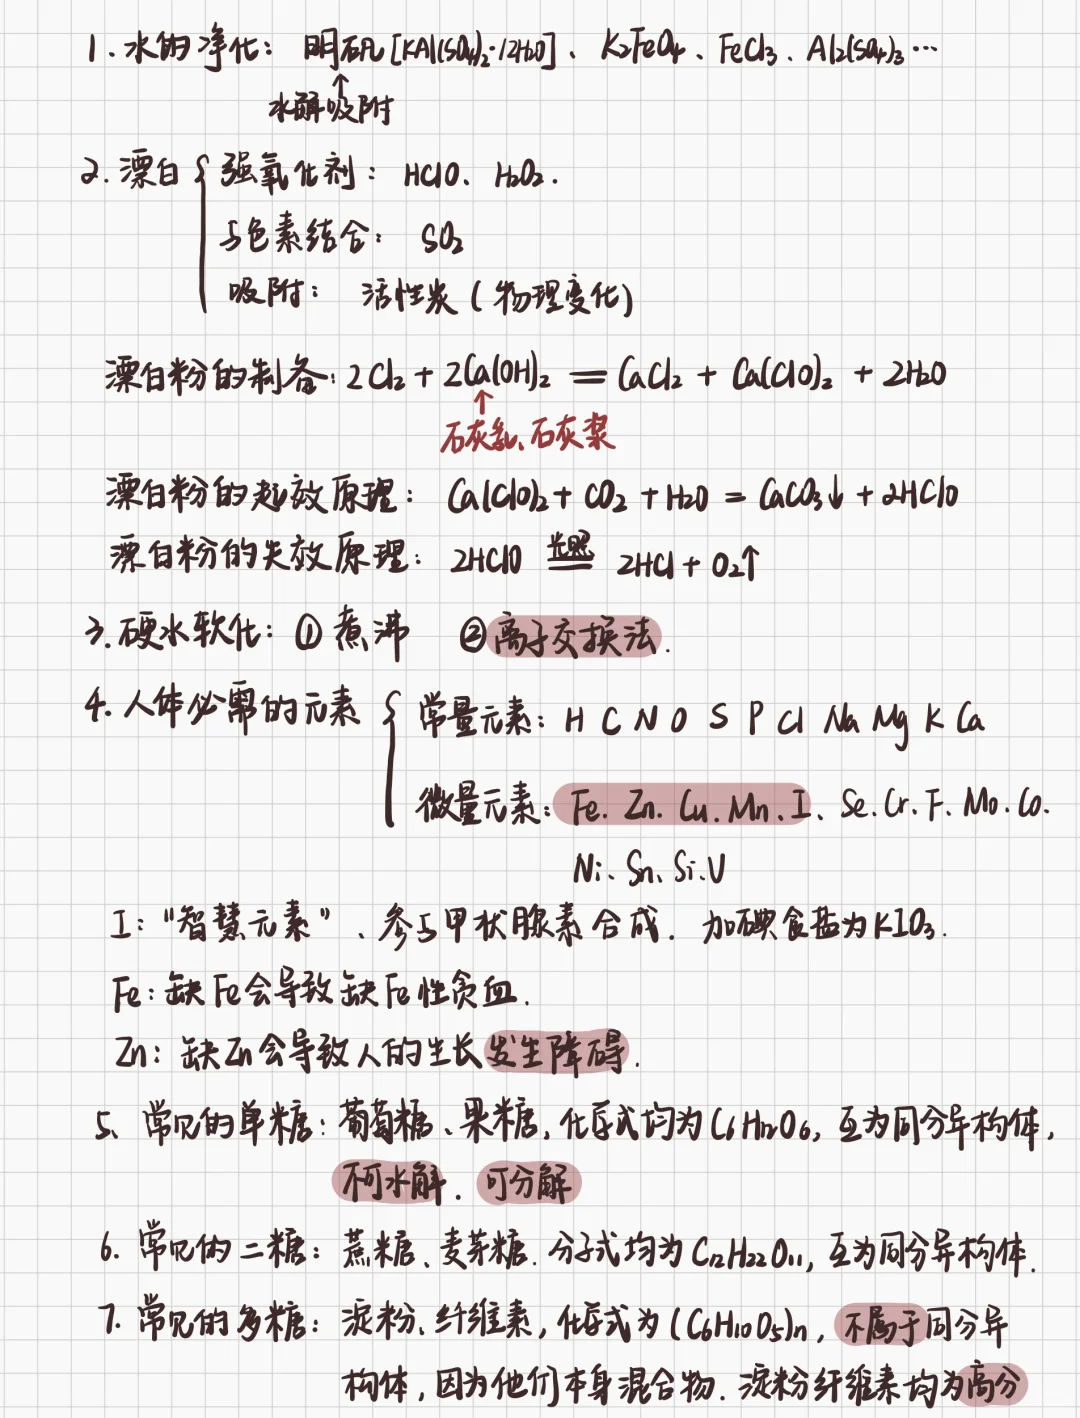 1. 水的净化: 明矾[KAl(SO₄)₂·12H₂O]、K₂FeO₄、FeCl₃、Al₂(SO₄)₃…
↑
水解吸附
2. 漂白 { 强氧化剂: HClO、H₂O₂.
与色素结合: SO₂
吸附: 活性炭(物理变化)
漂白粉的制备: 2Cl₂ + 2Ca(OH)₂ = CaCl₂ + Ca(ClO)₂ + 2H₂O
↑
石灰乳、石灰浆
漂白粉的起效原理: Ca(ClO)₂ + CO₂ + H₂O = CaCO₃↓ + 2HClO
光照
漂白粉的失效原理: 2HClO = 2HCl + O₂↑
3. 硬水软化: ① 煮沸 ② 离子交换法.
4. 人体必需的元素 { 常量元素: H C N O S P Cl Na Mg K Ca
微量元素: Fe. Zn. Cu. Mn、I、Se. Cr. F. Mo. Co.
Ni、Sn、Si、V
I: “智慧元素”、参与甲状腺素合成. 加碘食盐为KIO₃.
Fe: 缺Fe会导致缺Fe性贫血.
Zn: 缺Zn会导致人的生长发生障碍.
5、常见的单糖: 葡萄糖、果糖, 化学式均为C₆H₁₂O₆, 互为同分异构体,
不可水解. 可分解
6. 常见的二糖: 蔗糖、麦芽糖. 分子式均为C₁₂H₂₂O₁₁, 互为同分异构体.
7. 常见的多糖: 淀粉、纤维素, 化学式为(C₆H₁₀O₅)n, 不属于同分异
构体, 因为他们本身混合物. 淀粉纤维素均为高分